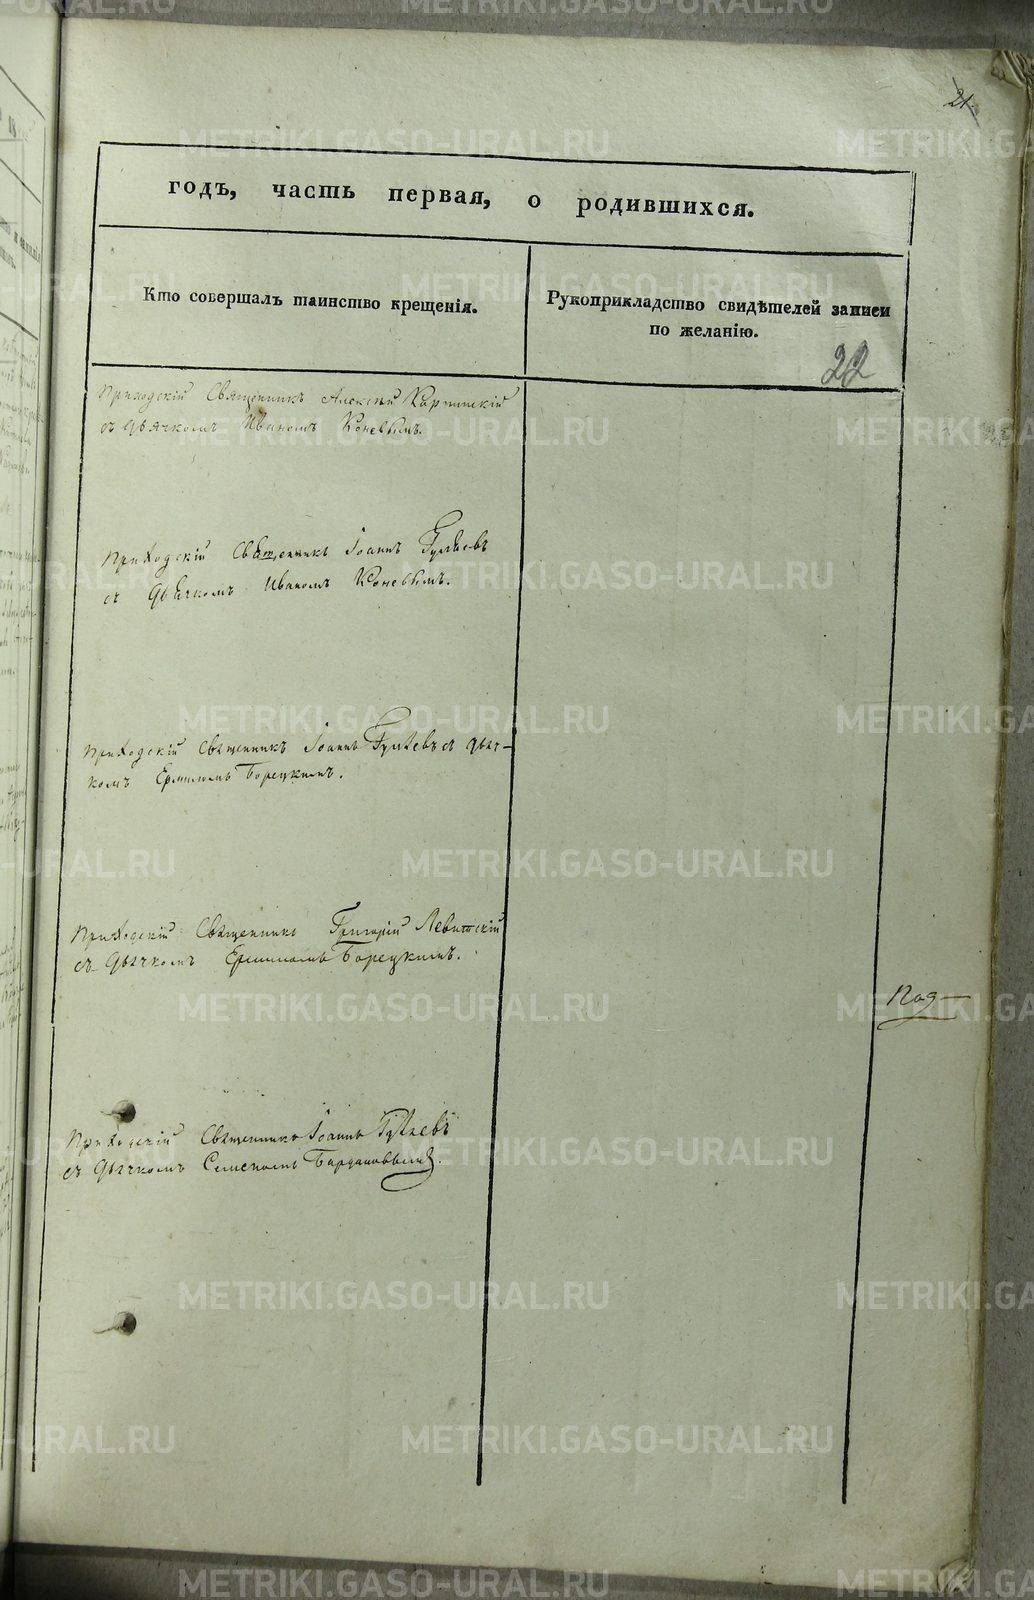 21.
годъ, часть первая, о родившихся.
Кто совершалъ таинство крещенія.
Рукоприкладство свидѣтелей записи
по желанію.
22
Приходскій Священникъ Алексѣй Карпинскій
съ дьячкомъ Иваномъ Коневымъ.
Приходскій Священникъ Іоаннъ Гуляевъ
съ дьячкомъ Иваномъ Коневымъ.
Приходскій Священникъ Іоаннъ Гуляевъ съ дьяч-
комъ Ермиломъ Борецкимъ.
Приходскій Священникъ Григорій Левитскій
съ дьячкомъ Борецкимъ.
Приходскій Священникъ Іоаннъ Гуляевъ
съ дьячкомъ Семеномъ
METRIKI.GASO-URAL.RU